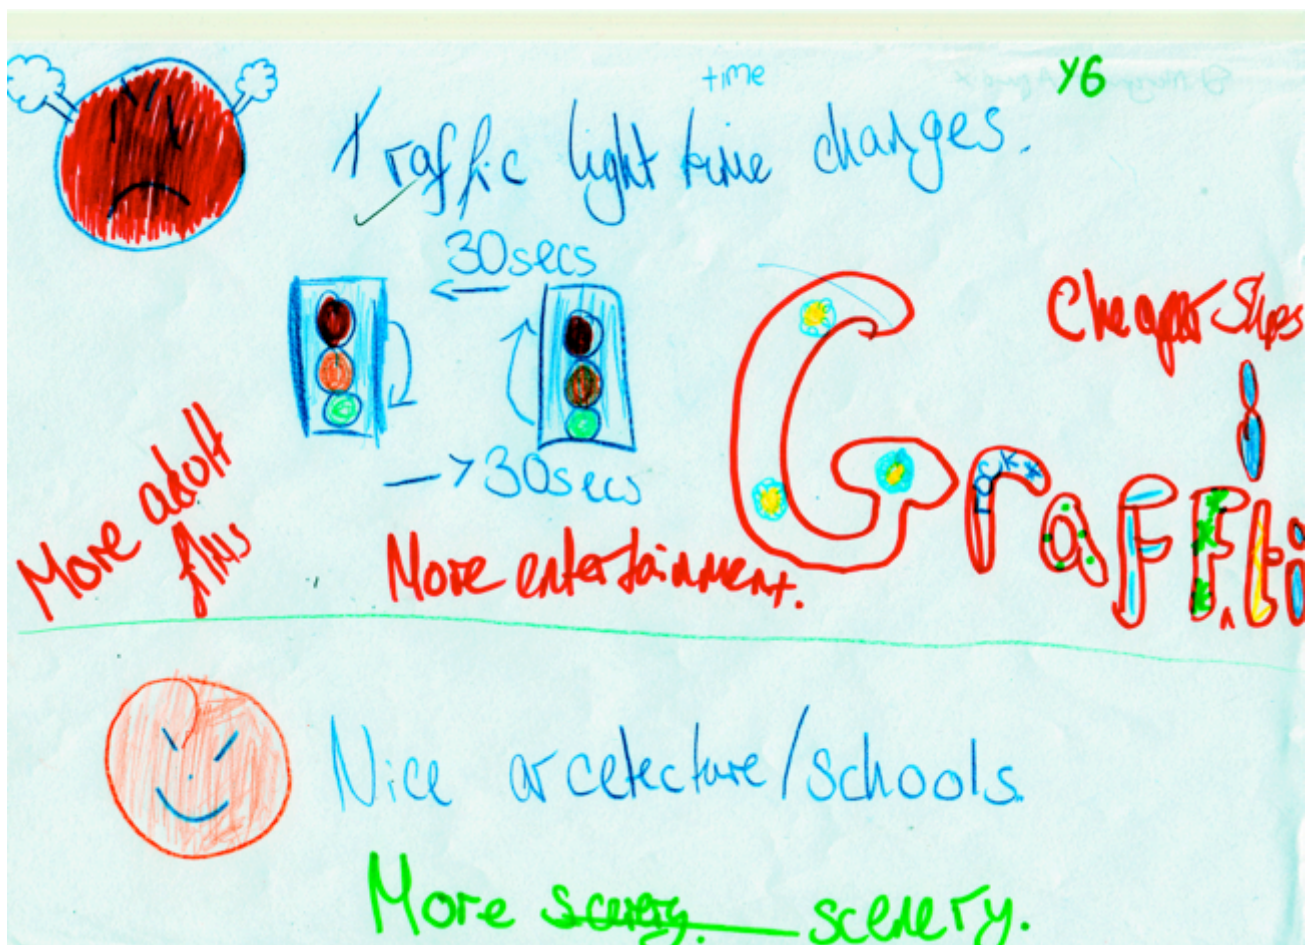 time
Y6
Traffic light time changes.
30secs
Cheaper Shops
30secs
Graffiti
rocks
More adult
films
More entertainment.
Nice arcetecture/schools.
More scenery. scenery.